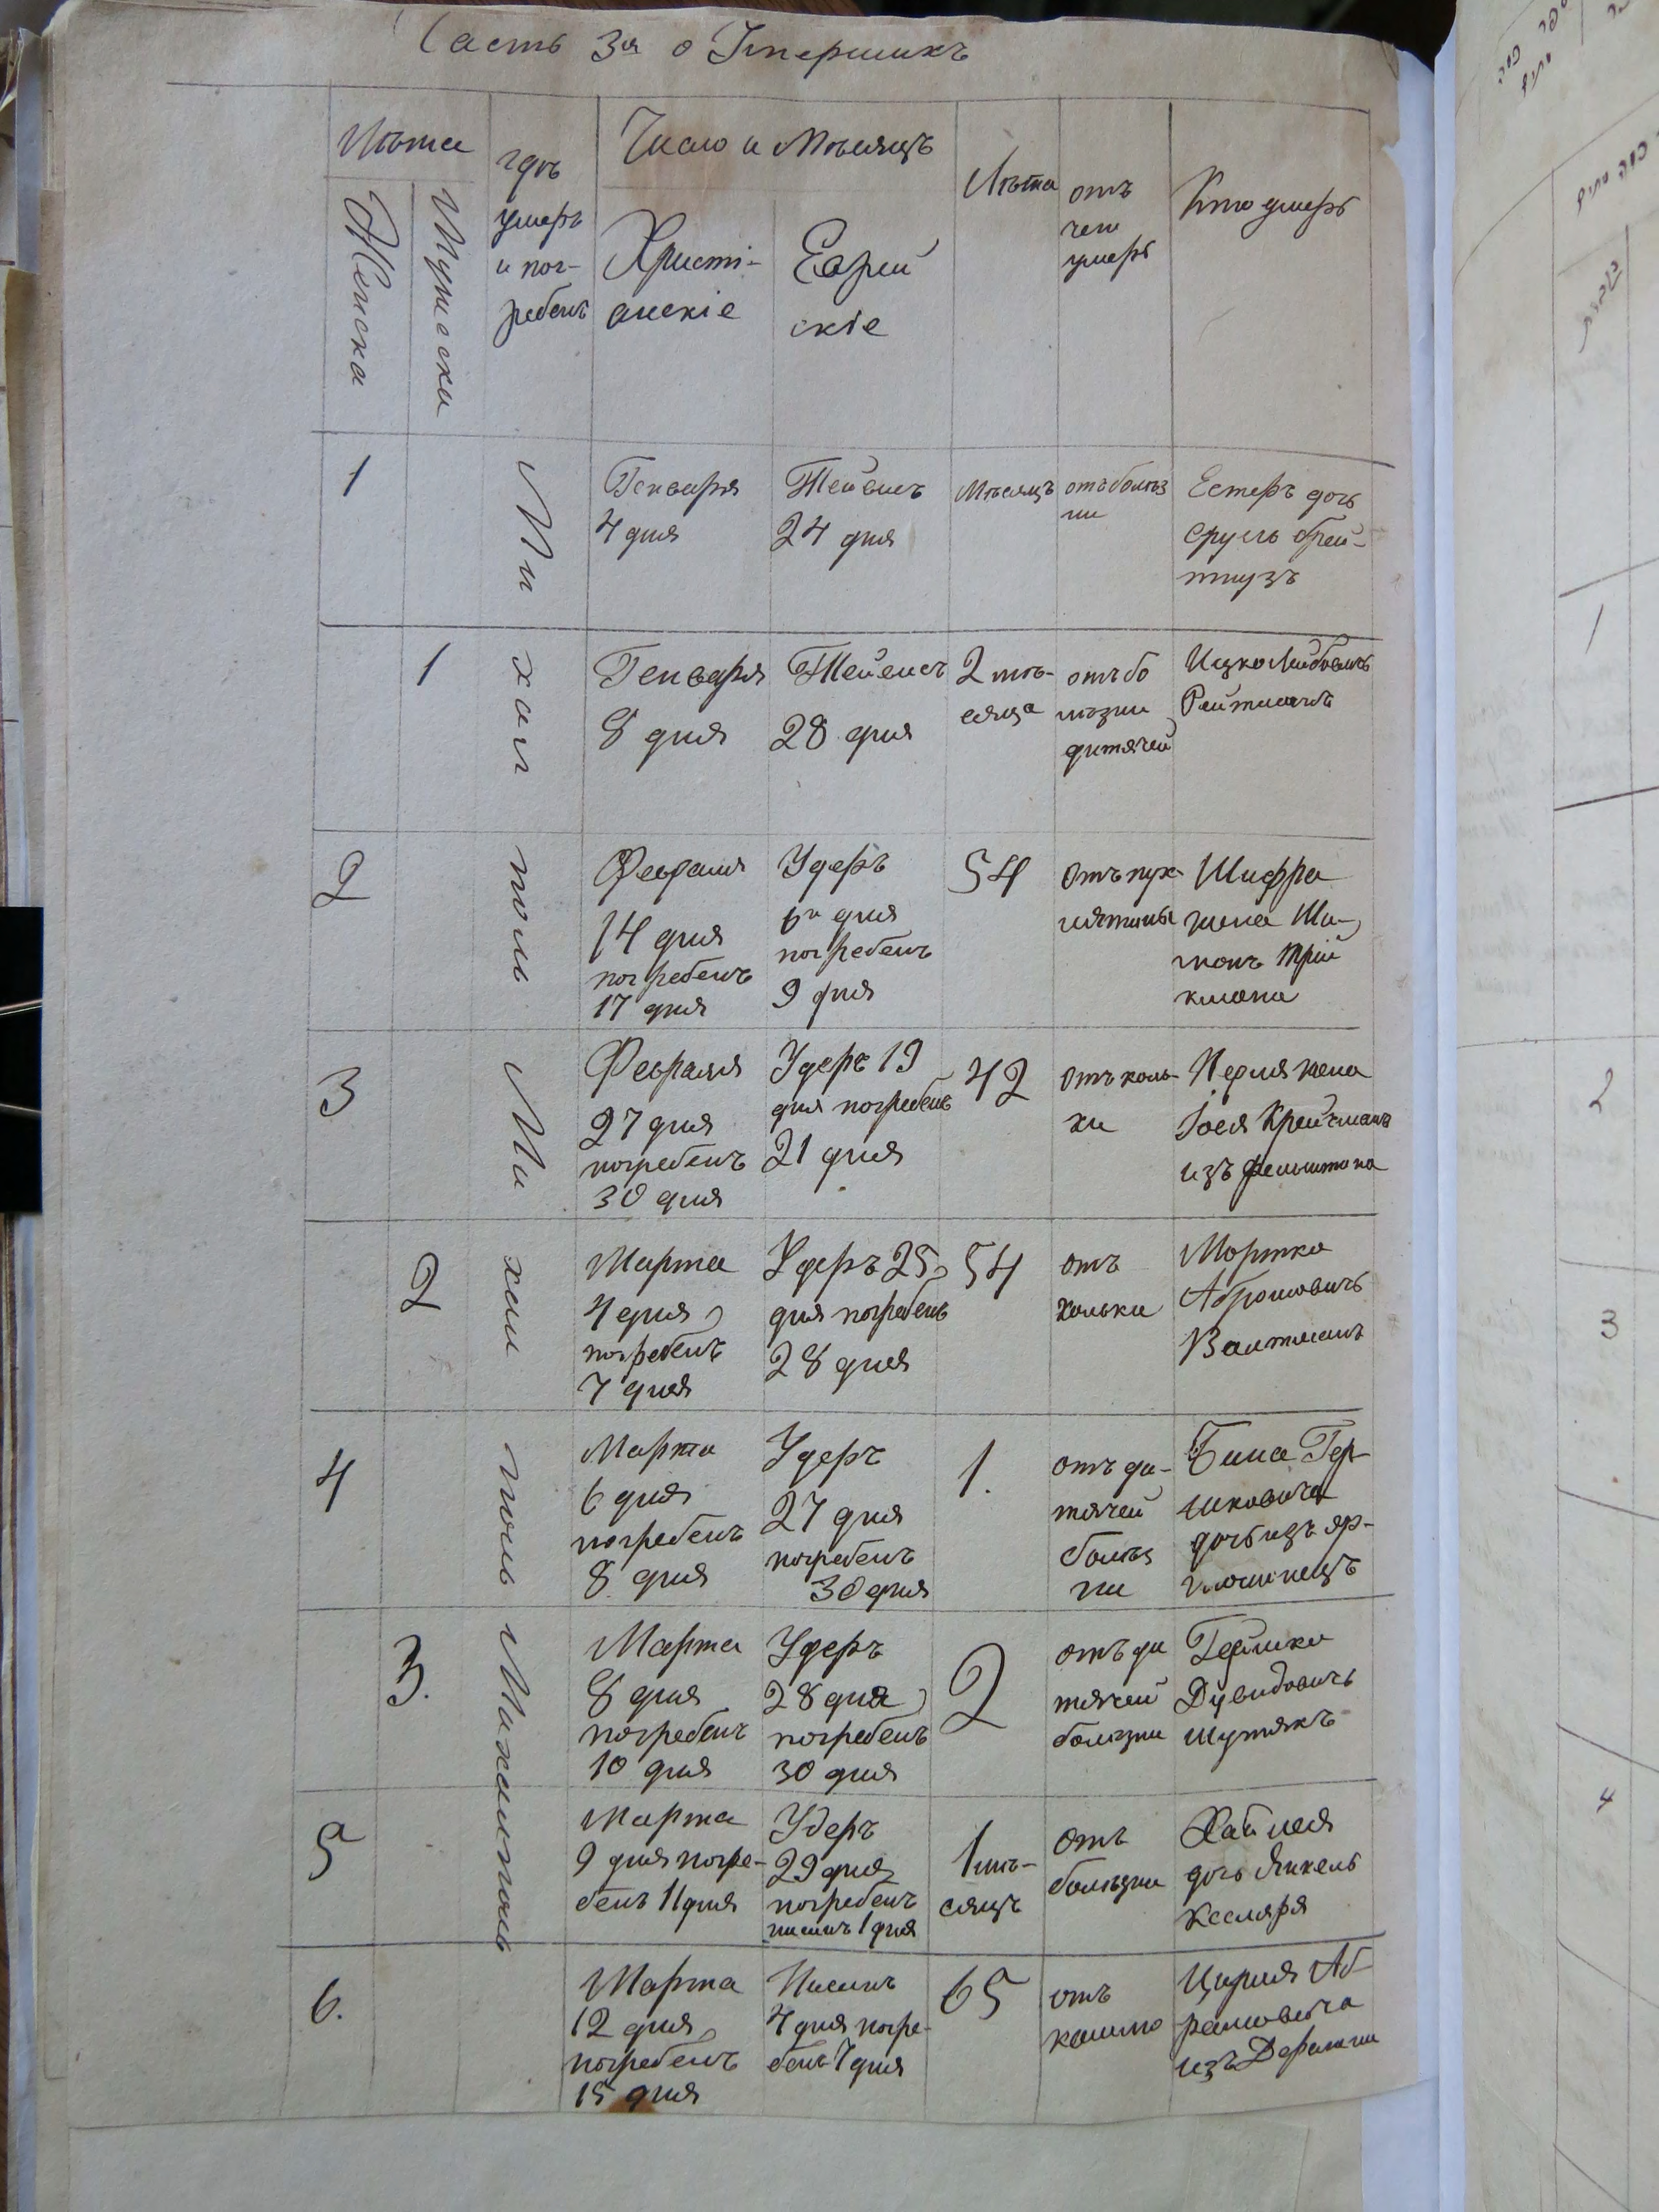 Часть 3я о Умершихъ
Лѣта
Женска
Мужеска
гдѣ
умеръ
и пог-
ребенъ
Число и Мѣсяцъ
Христі-
анскіе
Еврей
скіе
Лѣта
отъ
чего
умеръ
Кто умеръ
1
Ми
Генваря
4 дня
Тейвесъ
24 дня
Мѣсяцъ
отъ болѣз
ни
Естеръ дочь
Сруль брей-
тгузъ
1
хал
Генваря
8 дня
Тейвесъ
28 дня
2 мѣ-
сяца
отъ бо
лѣзни
дитячей
Ицко Лейбовичъ
Рейтманъ
2
поль
Февраля
14 дня
погребенъ
17 дня
Удеръ
6и дня
погребенъ
9 дня
54
отъ пух-
Шифра
жена Ши-
монъ
3
Ми
Февраля
27 дня
погребенъ
30 дня
Удеръ 19
дня погребенъ
21 дня
42
отъ коль-
ки
Перля жена
Іося Крейчманъ
изъ Фельштина
2
хал
Марта
4 дня
погребенъ
7 дня
Удеръ 25
дня погребенъ
28 дня
54
отъ
кольки
Мортко
Абрамовичъ
Валтманъ
4
поль
Марта
6 дня
погребенъ
8 дня
Удеръ
27 дня
погребенъ
30 дня
1.
отъ ди-
тячей
болѣз
ни
Бина Гер-
шковича
дочь изъ яр-
молинецъ
3.
Михалполь
Марта
8 дня
погребенъ
10 дня
Удеръ
28 дня
погребенъ
30 дня
2
отъ ди
тячей
болѣзни
Гершко
Дувидовичъ
Шутякъ
5
Марта
9 дня погре-
бенъ 11 дня
Удеръ
29 дня
погребенъ
нисанъ 1 дня
1 мѣ-
сяцъ
отъ
болѣзни
дочь Янкель
Кесляря
6.
Марта
12 дня
погребенъ
15 дня
Нисанъ
4 дня погре-
бенъ 7 дня
65
отъ
кашлю
Цирля Аб-
рамовича
изъ Деражни
1
2
3
4